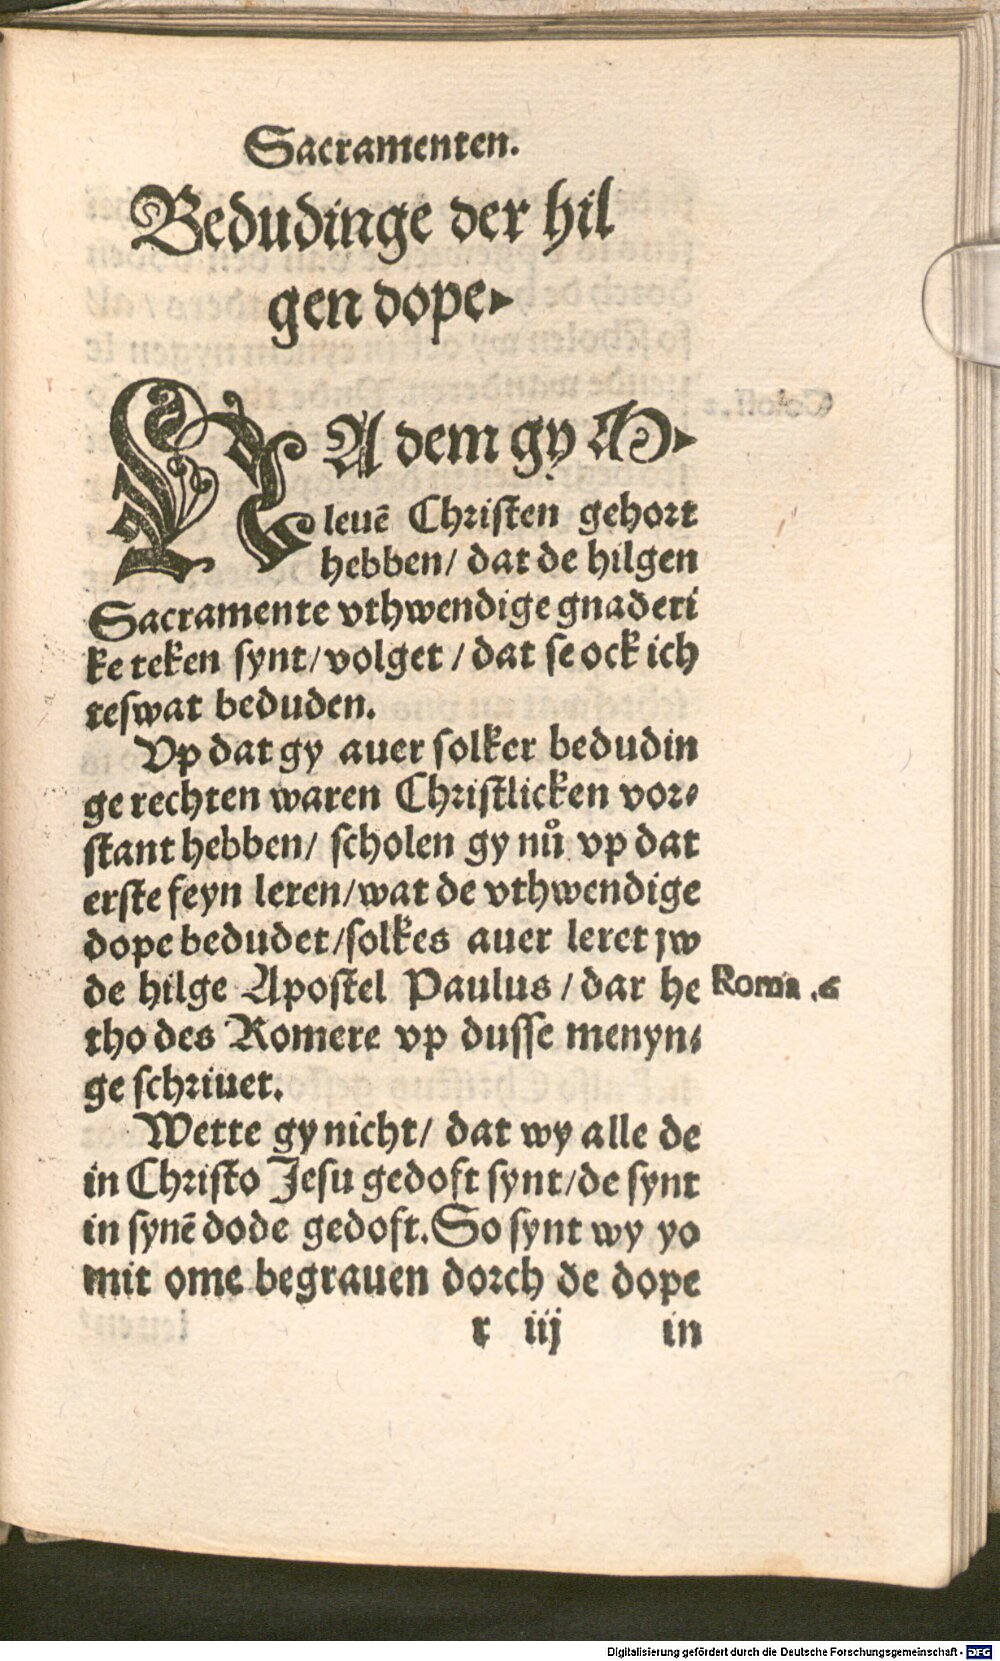 Sacramenten.
Bedudinge der hil
gen dope
NA dem gy M
leuē Christen gehort
hebben/ dat de hilgen
Sacramente vthwendige gnaderi
ke teken synt/volget / dat se ock ich
teswat beduden.
Vp dat gy auer solker bedudin
ge rechten waren Christlicken vor⸗
stant hebben/ scholen gy nů vp dat
erste feyn leren/wat de vthwendige
dope bedudet/solkes auer leret jw
de hilge Apostel Paulus / dar he
Roma .6
tho des Romere vp dusse menyn⸗
ge schriuet.
Wette gy nicht/ dat wy alle de
in Christo Jesu gedoft synt/de synt
in synē dode gedoft. So synt wy yo
mit ome begrauen dorch de dope
r iij in
Digitalisierung gefördert durch die Deutsche Forschungsgemeinschaft - DFG